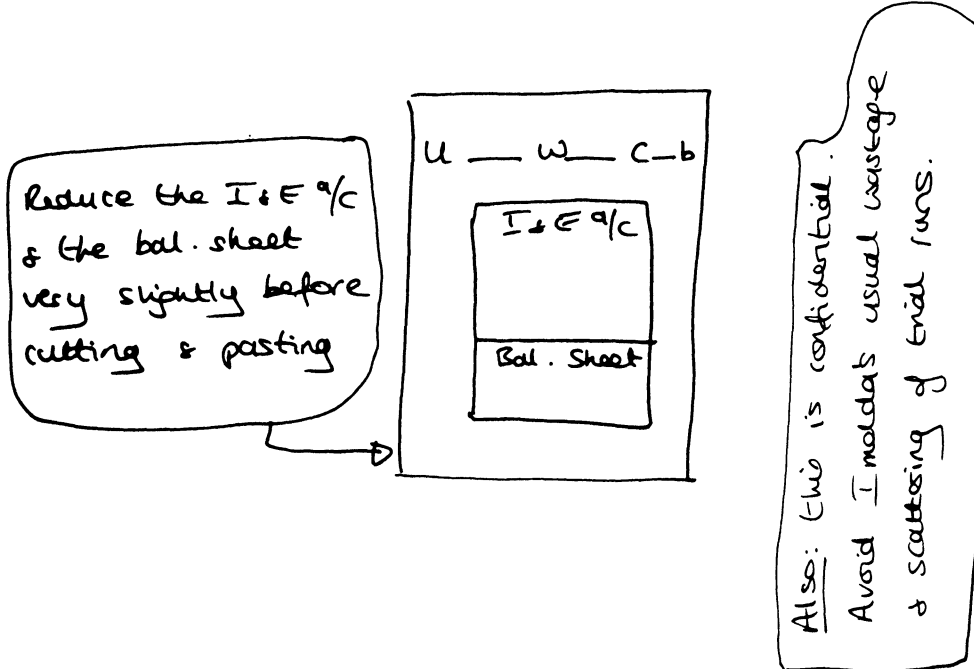 Reduce the I & E a/c
& the bal. sheet
very slightly before
cutting & pasting
U __ W__ C_b
I & E a/c
Bal. Sheet
Also: this is confidential.
Avoid Imelda's usual wastage
& scattering of trial runs.